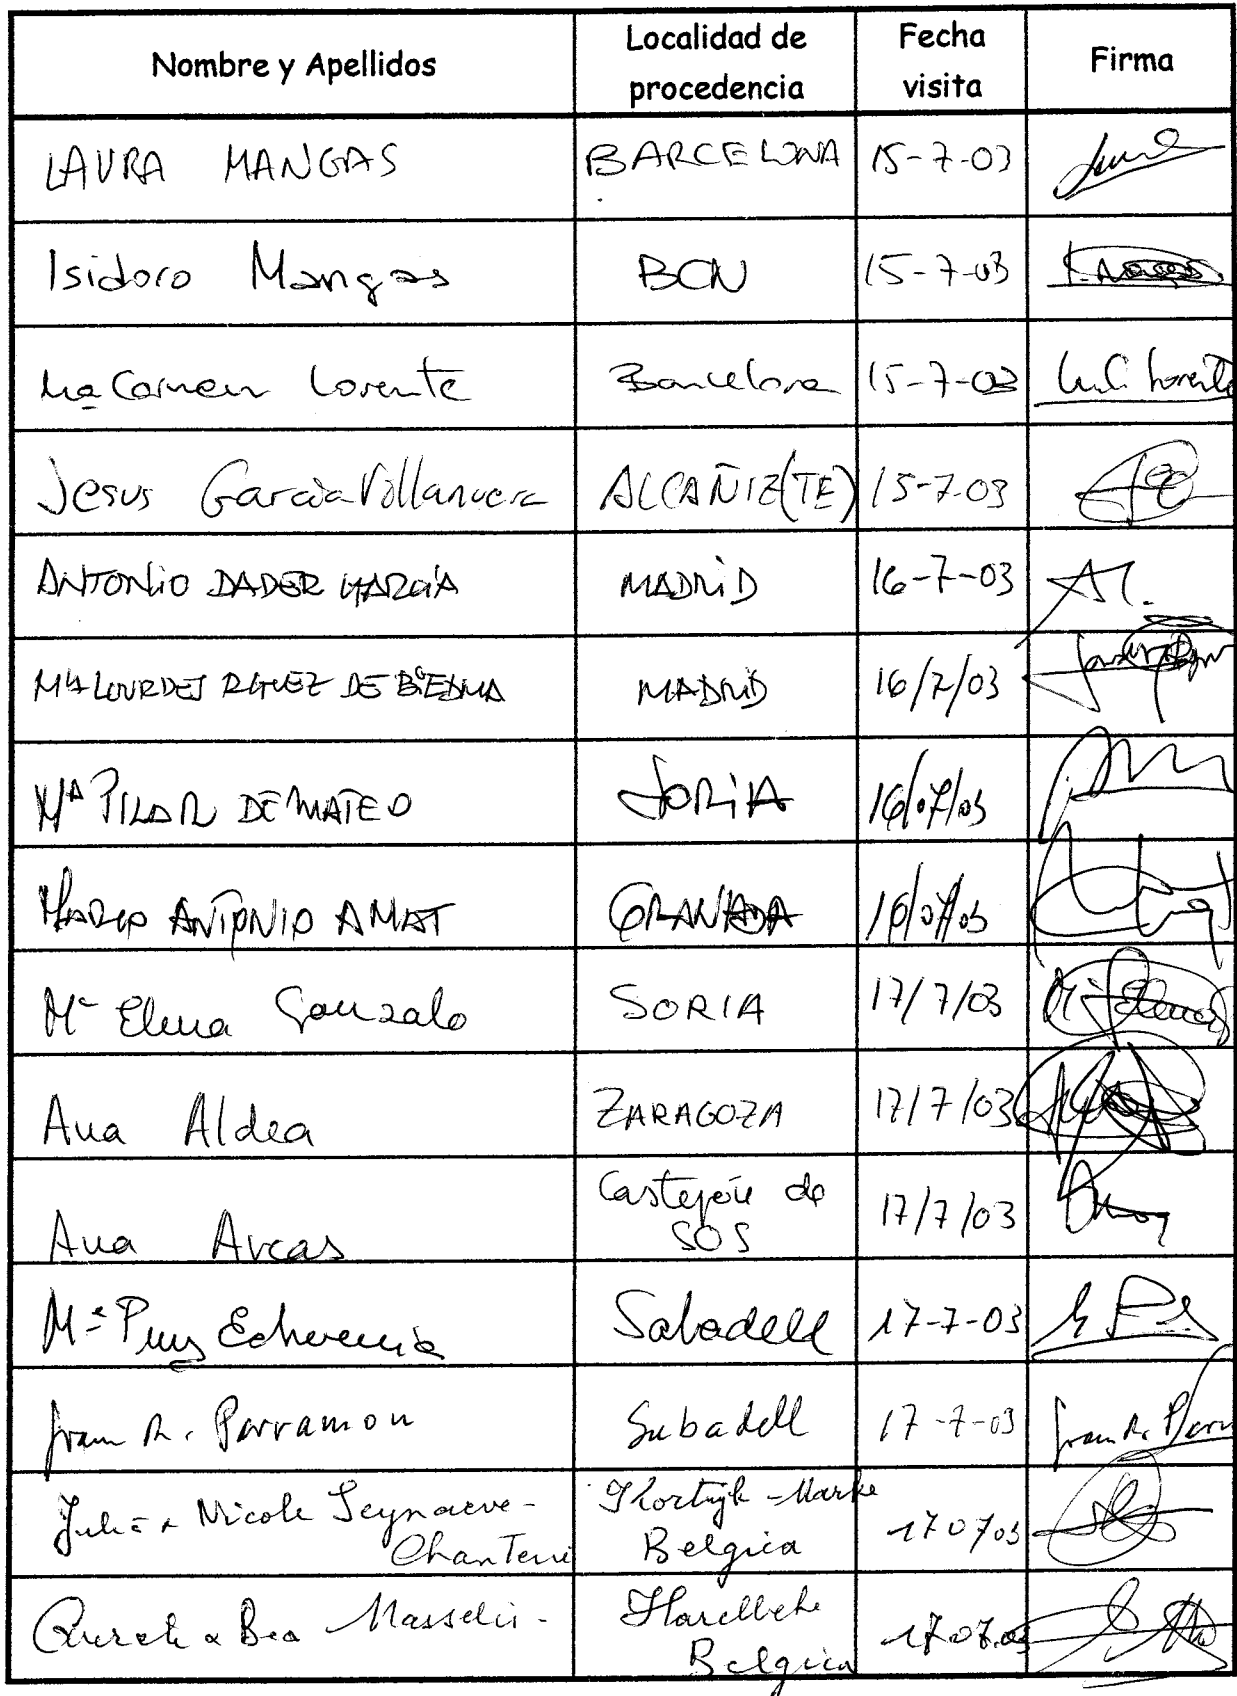 Nombre y Apellidos Localidad de procedencia Fecha visita Firma
LAURA MANGAS BARCELONA 15-7-03
Isidoro Mangas BCN 15-7-03
Mª Carmen Lorente Barcelona 15-7-03
Jesus Garcia Villanueva ALCAÑIZ (TE) 15-7-03
ANTONIO DADER GARCÍA MADRID 16-7-03
Mª LOURDES RGUEZ DE BIEDMA MADRID 16/7/03
Mª PILAR DE MATEO SORIA 16/07/03
MARIO ANTONIO AMAT GRANADA 16/07/03
Mª Elena Gonzalo SORIA 17/7/03
Ana Aldea ZARAGOZA 17/7/03
Ana Arcas Castejón de SOS 17/7/03
Mª Puy Echeverria Sabadell 17-7-03
Joan R. Parramon Sabadell 17-7-03
Nicole Seynaeve-
Marke
Belgica 17 07 03
& Bea Masselis- Harelbeke
Belgica 17.07.03